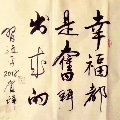 幸福都
是奮鬥
出來的
習近平
2018賀詞